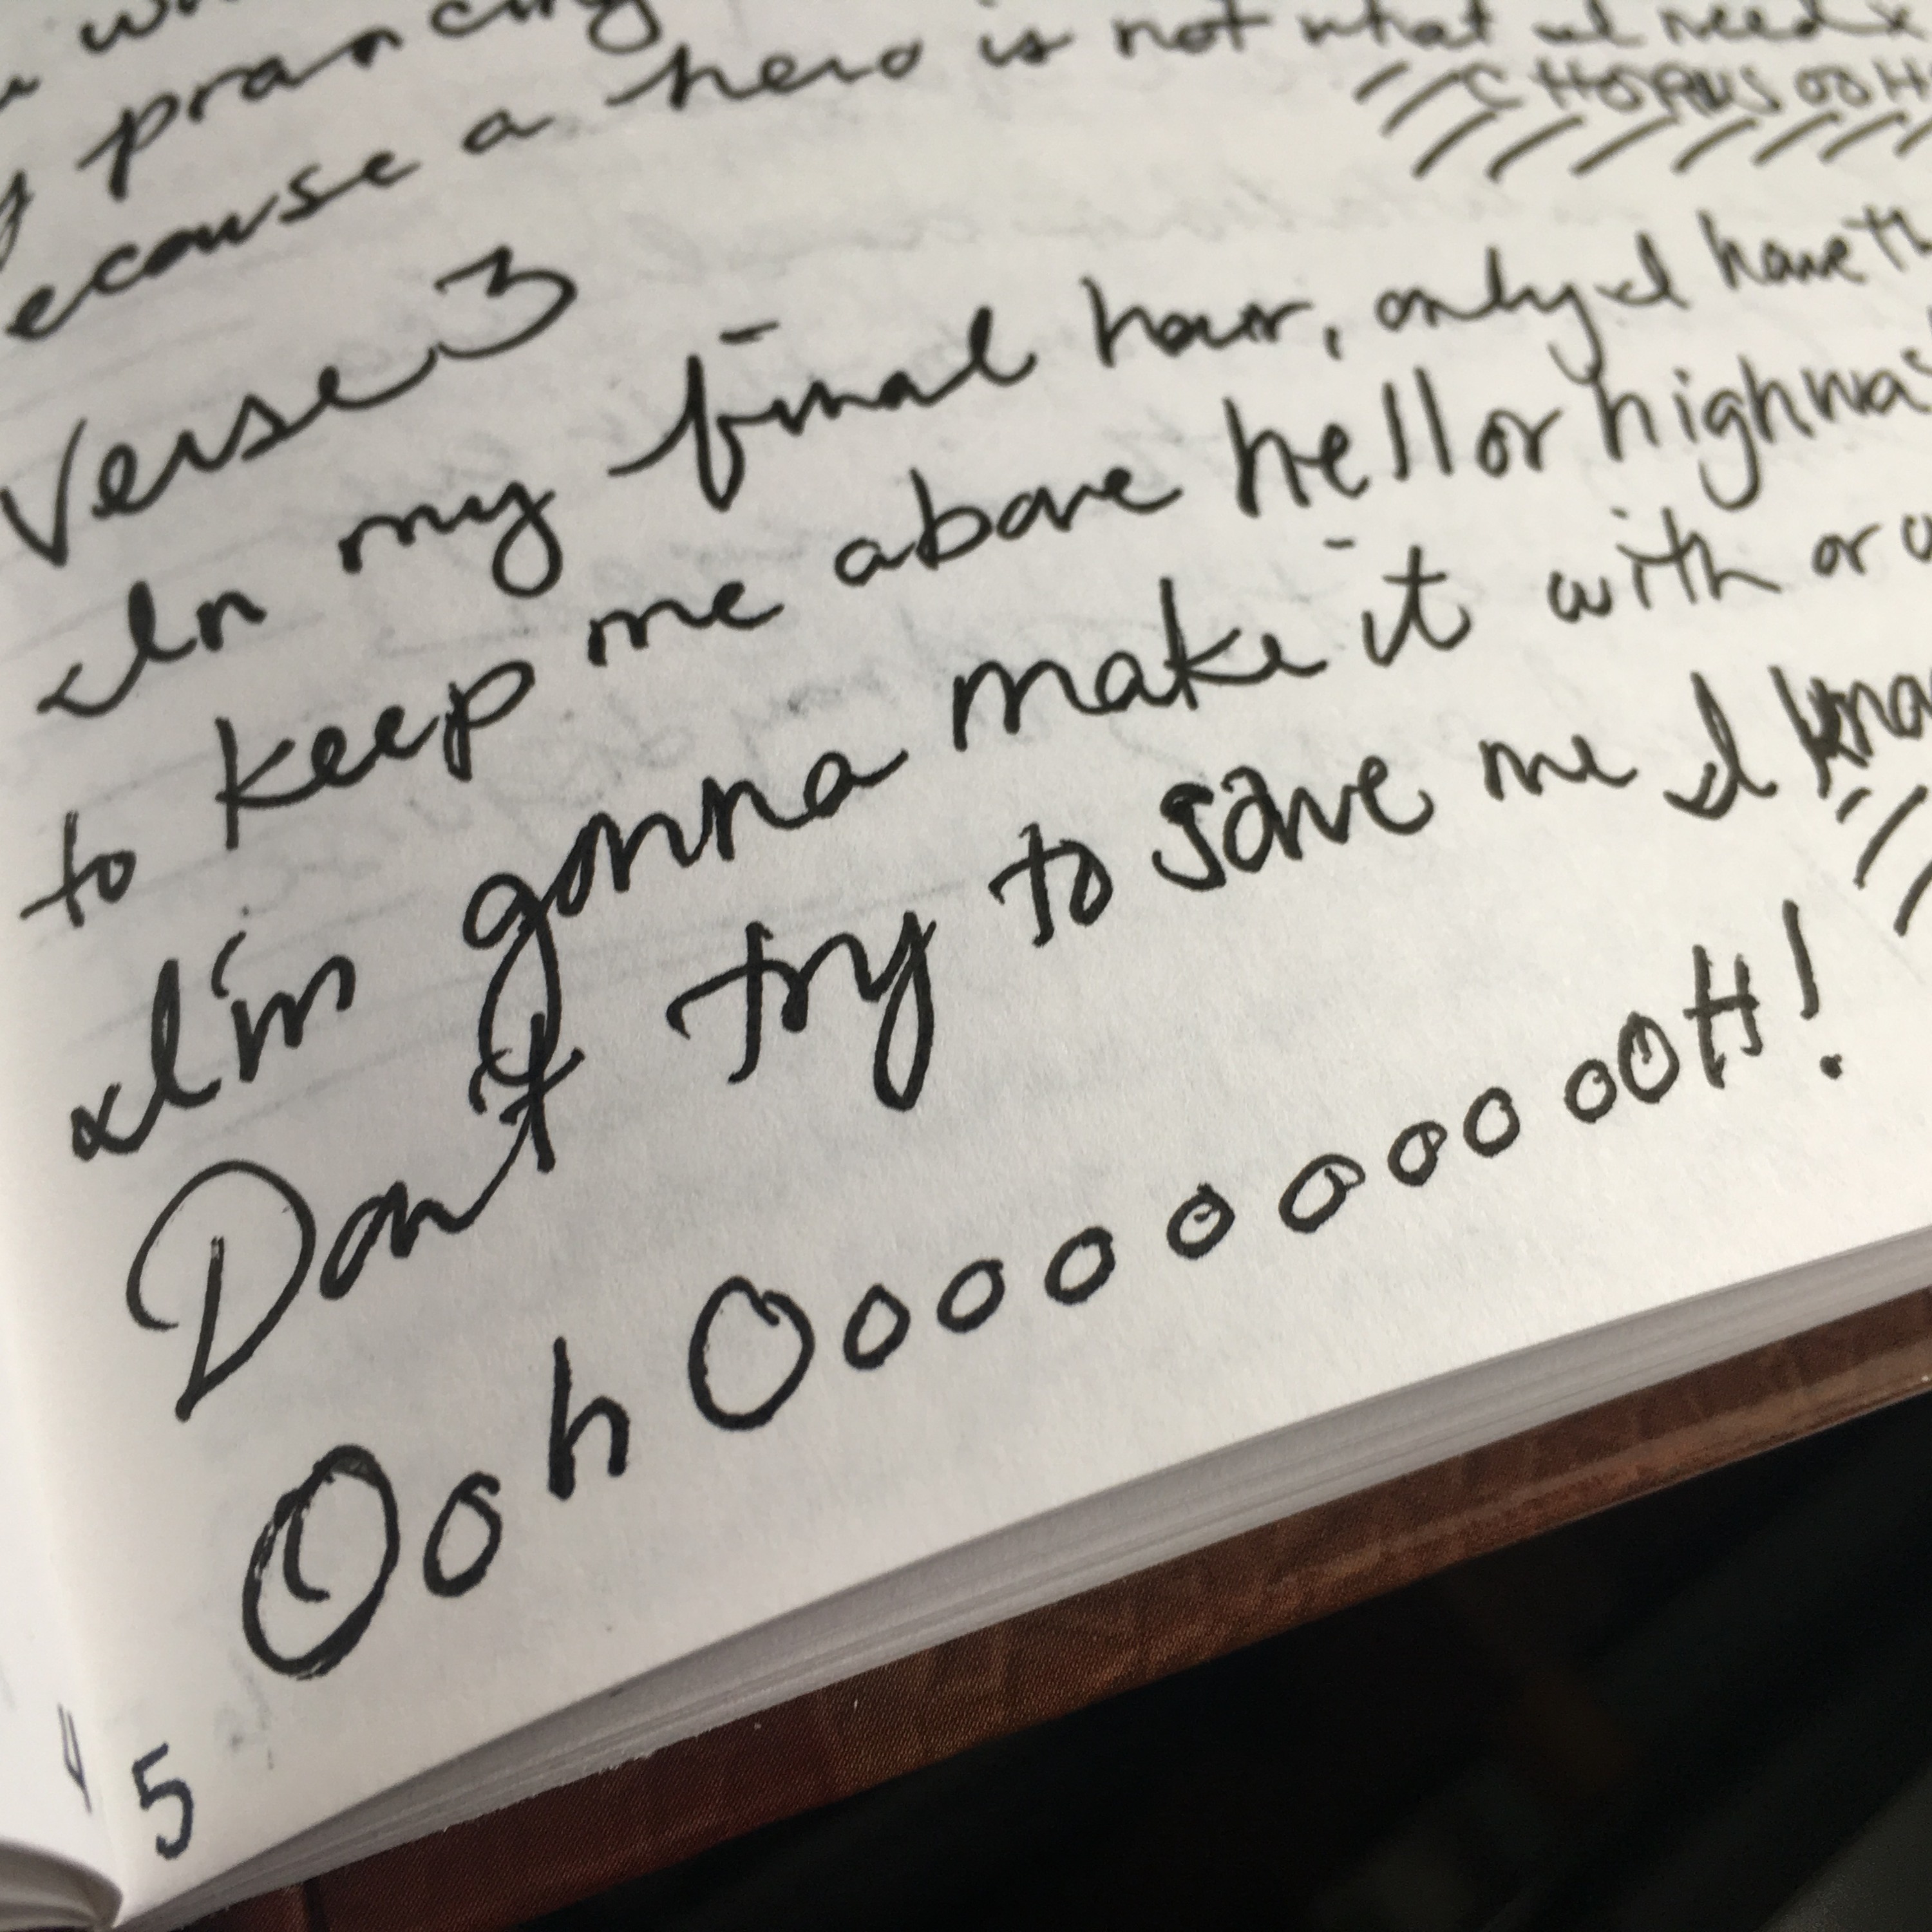 prancing
ecause a hero is not what I need
CHORUS OOH
Verse 3
In my final hour, only I have th
to keep me above hell or highwa
I'm gonna make it with or
Don't try to save me I kno
Ooh OoooooooooOH!
4
5